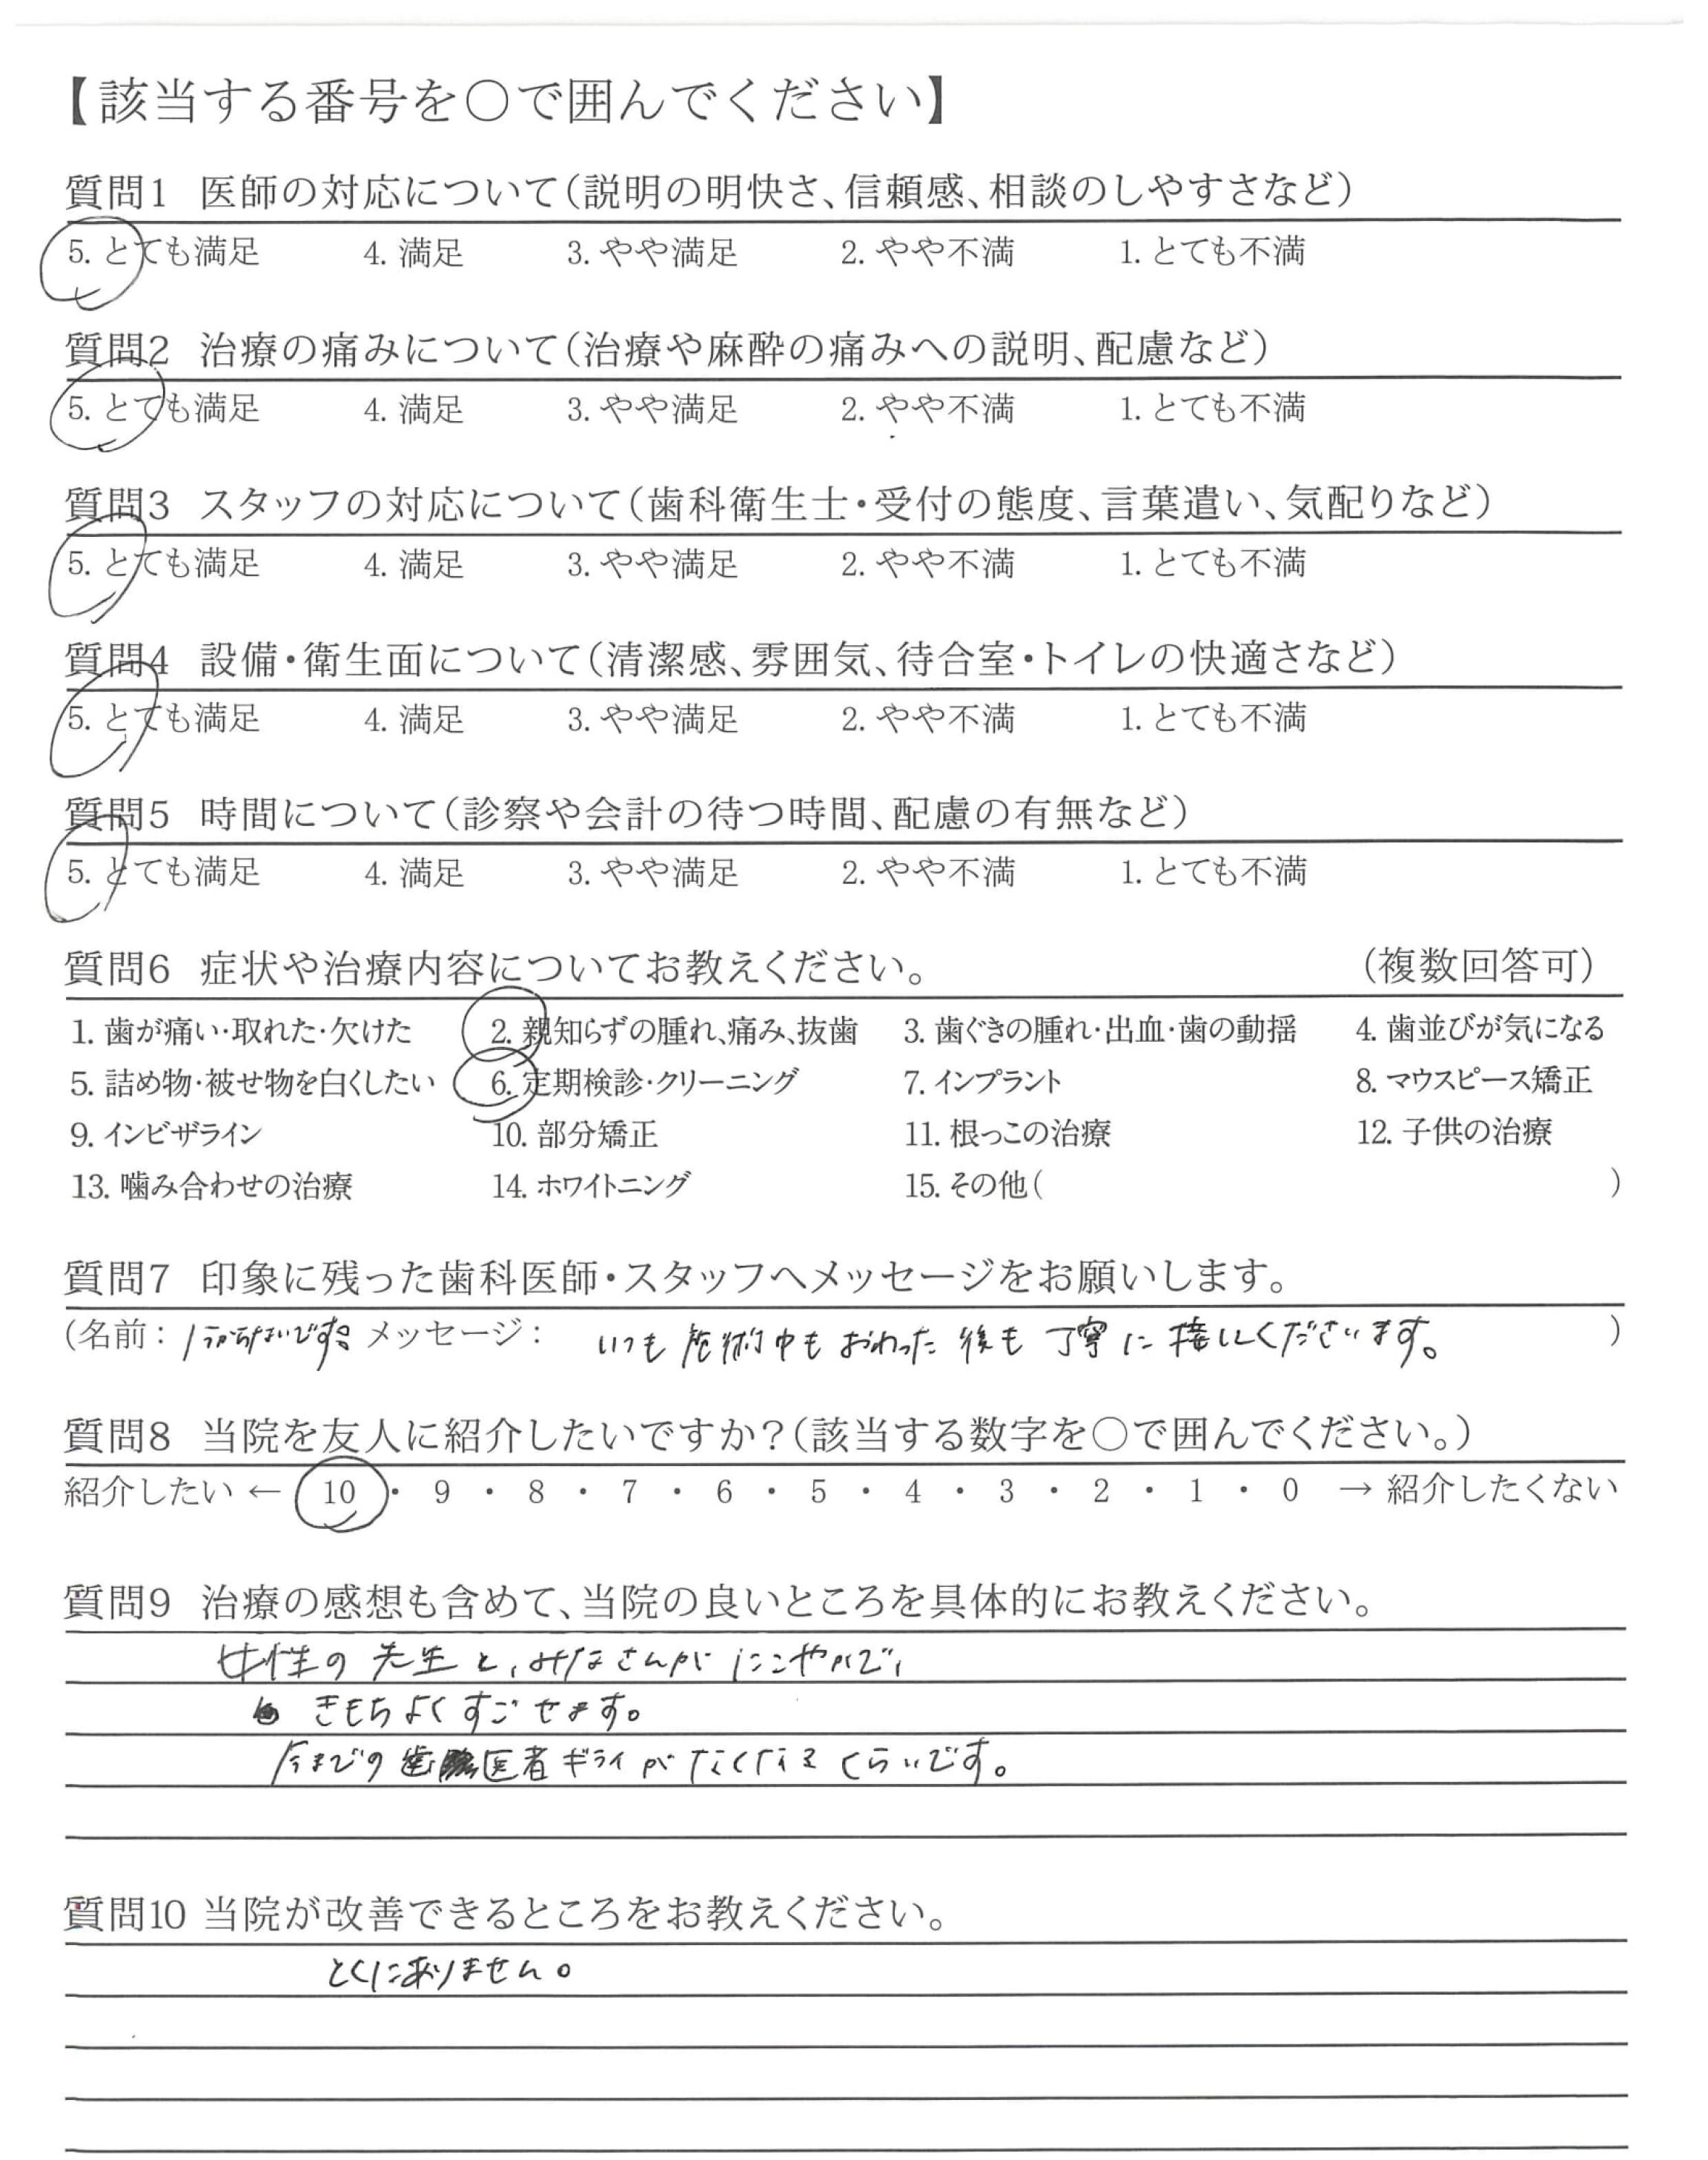 【該当する番号を○で囲んでください】
質問1 医師の対応について（説明の明快さ、信頼感、相談のしやすさなど）
5. とても満足 4. 満足 3. やや満足 2. やや不満 1. とても不満
質問2 治療の痛みについて（治療や麻酔の痛みへの説明、配慮など）
5. とても満足 4. 満足 3. やや満足 2. やや不満 1. とても不満
質問3 スタッフの対応について（歯科衛生士・受付の態度、言葉遣い、気配りなど）
5. とても満足 4. 満足 3. やや満足 2. やや不満 1. とても不満
質問4 設備・衛生面について（清潔感、雰囲気、待合室・トイレの快適さなど）
5. とても満足 4. 満足 3. やや満足 2. やや不満 1. とても不満
質問5 時間について（診察や会計の待つ時間、配慮の有無など）
5. とても満足 4. 満足 3. やや満足 2. やや不満 1. とても不満
質問6 症状や治療内容についてお教えください。 （複数回答可）
1. 歯が痛い・取れた・欠けた 2. 親知らずの腫れ、痛み、抜歯 3. 歯ぐきの腫れ・出血・歯の動揺 4. 歯並びが気になる
5. 詰め物・被せ物を白くしたい 6. 定期検診・クリーニング 7. インプラント 8. マウスピース矯正
9. インビザライン 10. 部分矯正 11. 根っこの治療 12. 子供の治療
13. 噛み合わせの治療 14. ホワイトニング 15. その他（ ）
質問7 印象に残った歯科医師・スタッフへメッセージをお願いします。
（名前： メッセージ： いつも施術中もおわった後も丁寧に接してくださいます。 ）
質問8 当院を友人に紹介したいですか？（該当する数字を○で囲んでください。）
紹介したい ← 10 ・ 9 ・ 8 ・ 7 ・ 6 ・ 5 ・ 4 ・ 3 ・ 2 ・ 1 ・ 0 → 紹介したくない
質問9 治療の感想も含めて、当院の良いところを具体的にお教えください。
女性の先生と、みなさんがにこやかで、
きもちよくすごせます。
今までの歯医者ギライがなくなるくらいです。
質問10 当院が改善できるところをお教えください。
とくにありません。